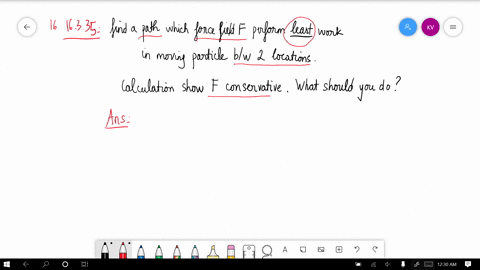 16 16.3.35: find a path which force field F perform least work
in moving particle b/w 2 locations.
Calculation show F conservative. What should you do?
Ans:
KV
A
12:30 AM